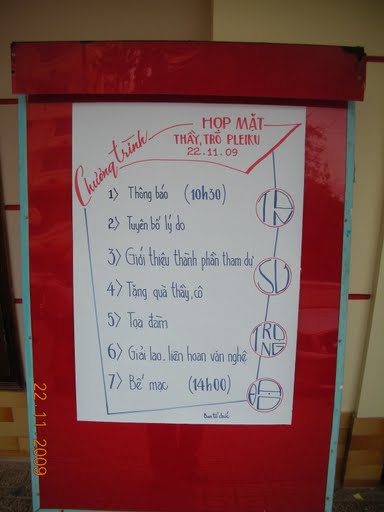 Chương trình
HỌP MẶT
THẦY, TRÒ PLEIKU
22.11.09
1) Thông báo (10h30)
2) Tuyên bố lý do
3) Giới thiệu thành phần tham dự
4) Tặng quà thầy, cô
5) Tọa đàm
6) Giải lao, liên hoan văn nghệ
7) Bế mạc (14h00)
SƯ
TRỌNG
ĐẠO
Ban tổ chức
22 11 2009